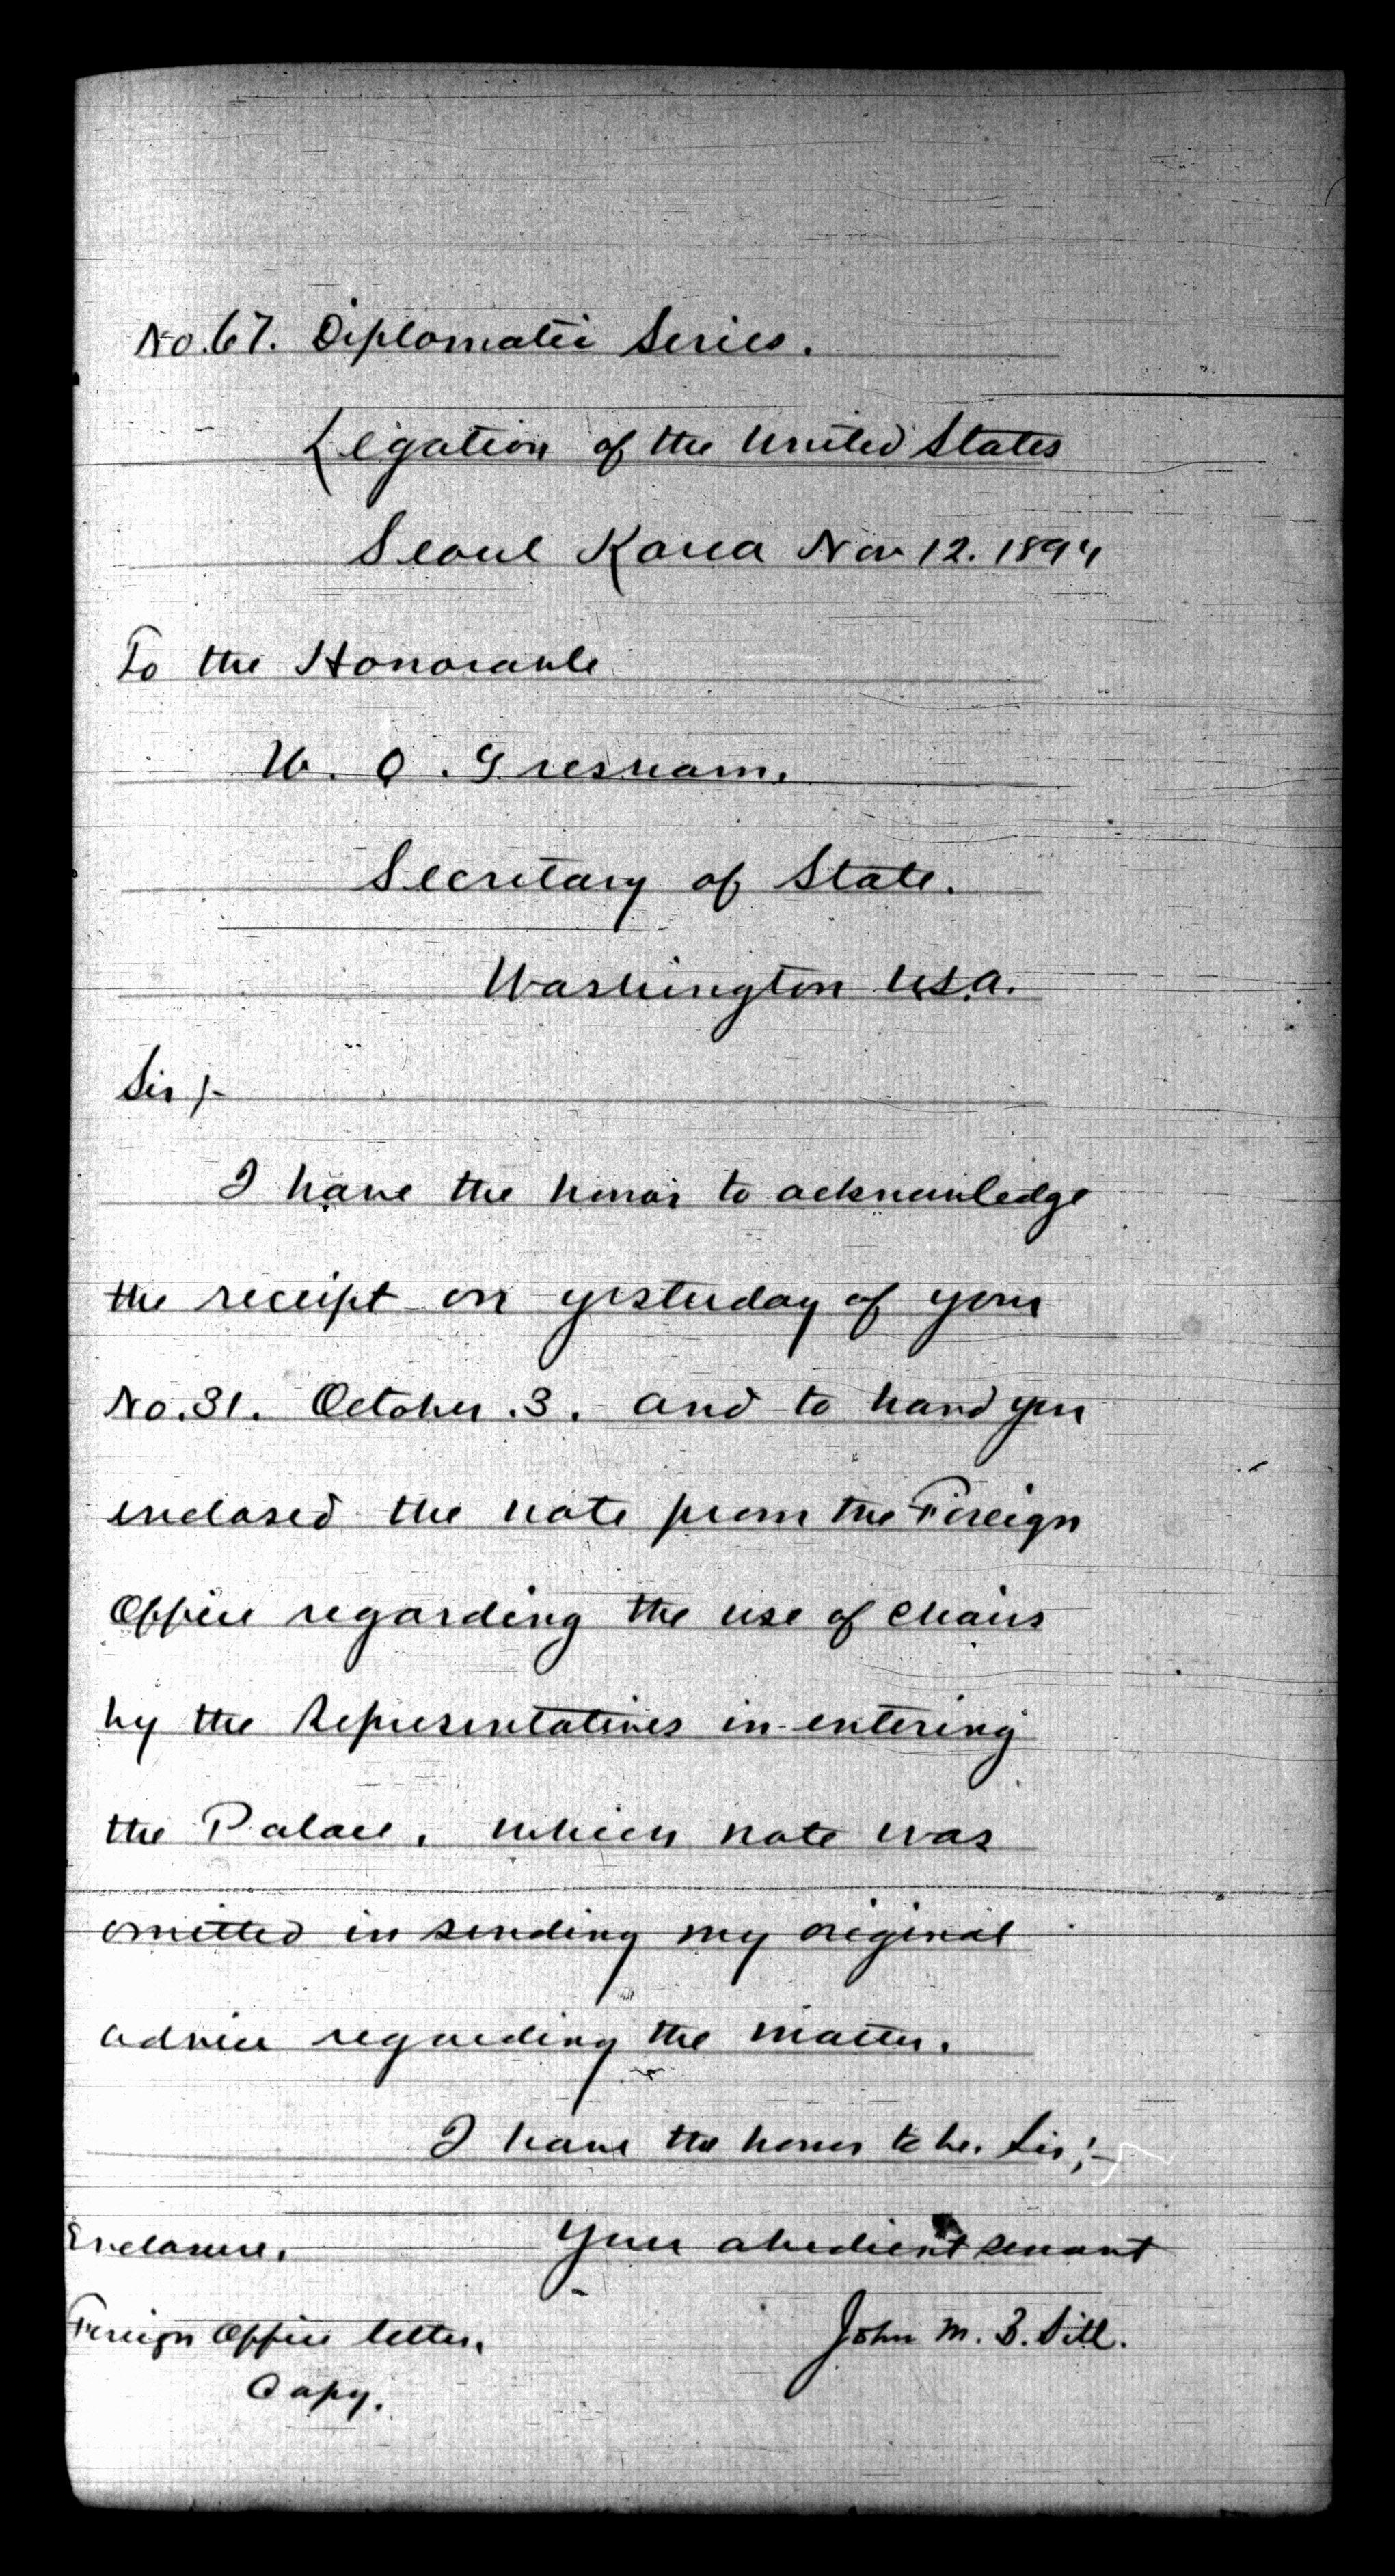 No. 67. Diplomatic Series.
Legation of the United States
Seoul Korea Nov 12. 1894
To the Honorable
W. Q. Gresham.
Secretary of State.
Washington U.S.A.
Sir;-
I have the honor to acknowledge
the receipt on yesterday of your
No. 31. October. 3. and to hand you
enclosed the note from the Foreign
Office regarding the use of chairs
by the Representatives in entering
the Palace, which note was
omitted in sending my original
advice regarding the matter.
I have the honor to be. Sir;-
Your obedient servant
Enclosure.
John M. B. Sill.
Foreign Office letter.
Copy.